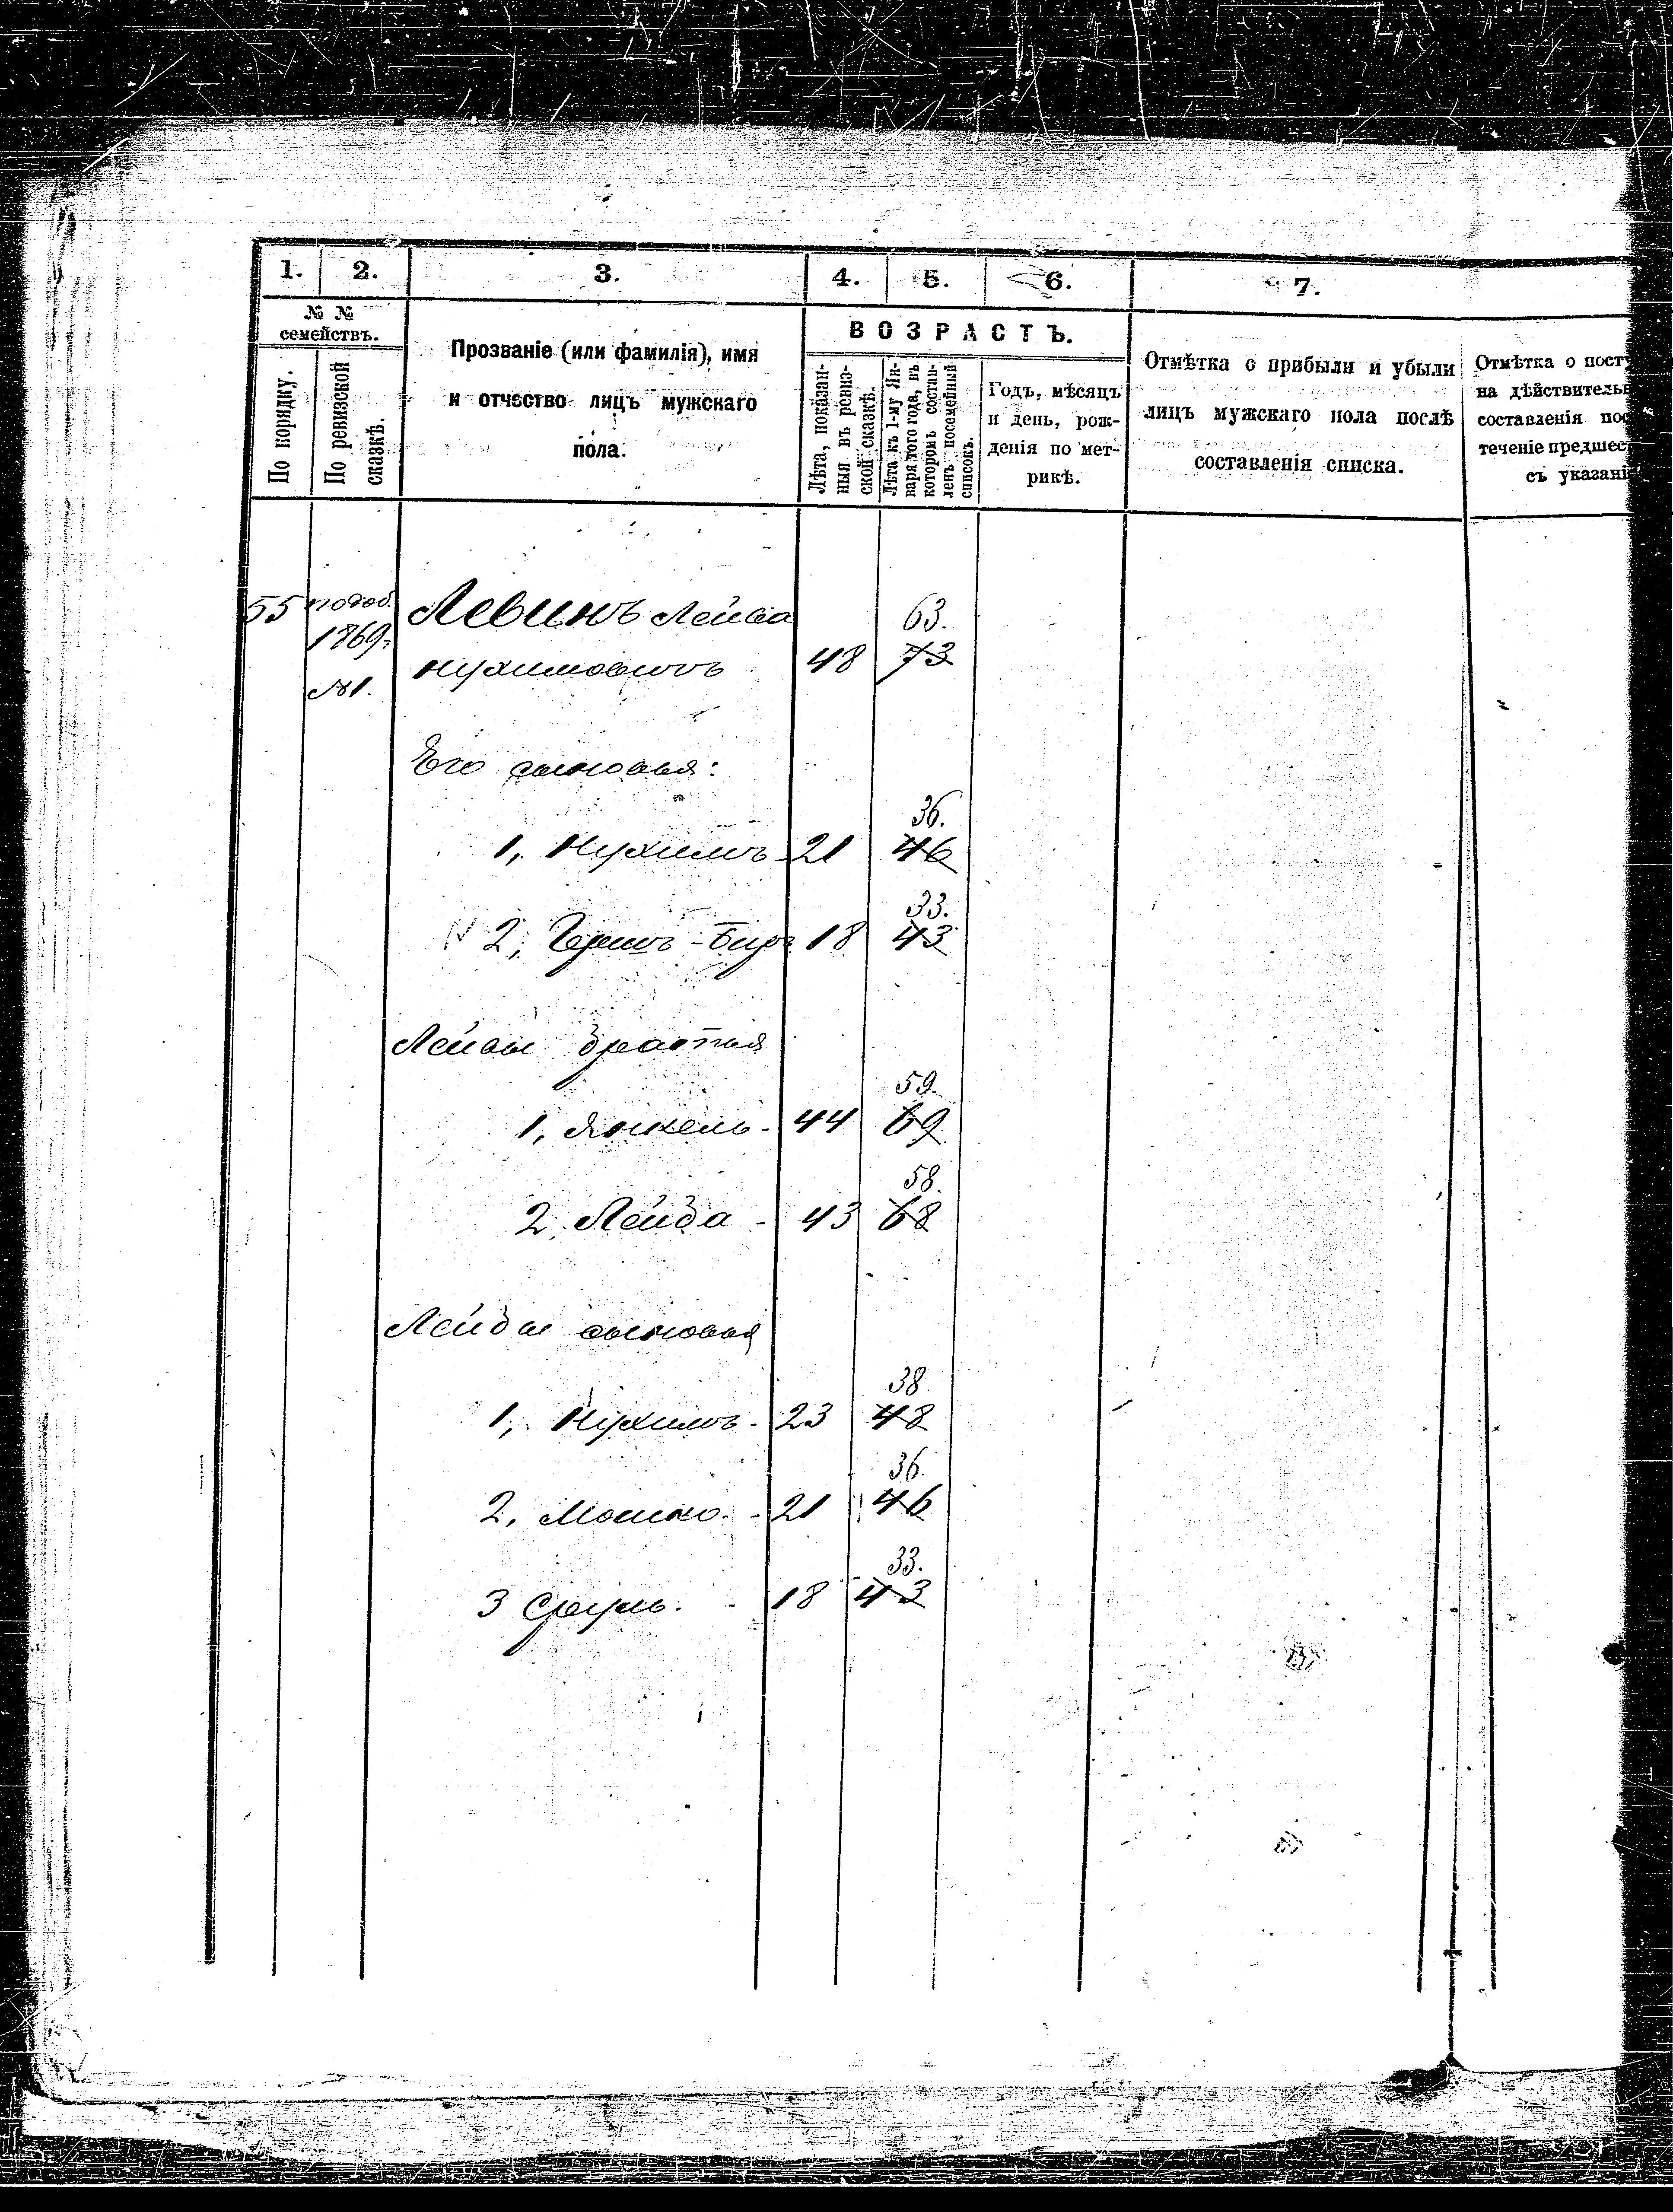 1. 2. 3. 4. 5. 6. 7.
№ №
семействъ.
По корядку.
По ревизской
сказкѣ.
Прозваніе (или фамилія), имя
и отчество лицъ мужскаго
пола.
ВОЗРАСТЪ.
Лѣта, показан-
ныя въ ревиз-
ской сказкѣ.
Лѣта къ 1-му Ян-
варя того года, въ
которомъ состав-
ленъ посемейный
списокъ.
Годъ, мѣсяцъ
и день, рож-
денія по мет-
рикѣ.
Отмѣтка о прибыли и убыли
лицъ мужскаго пола послѣ
составленія списка.
Отмѣтка о пост
на дѣйствитель
составленія пос
теченіе предшес
съ указані
55 Левинъ Лейва 63.
1869г
Нухимовичъ 48 73
№1.
Его сыновья:
36.
1, Нухимъ 21 46
33.
2, Гершъ-Беръ 18 43
Лейвы братья
59.
1, Янкель - 44 69
58.
2, Лейба - 43 68
Лейбы сыновья
38
1, Нухимъ - 23 48
36.
2, Мошко. - 21 46
33.
3 Сруль. - 18 43